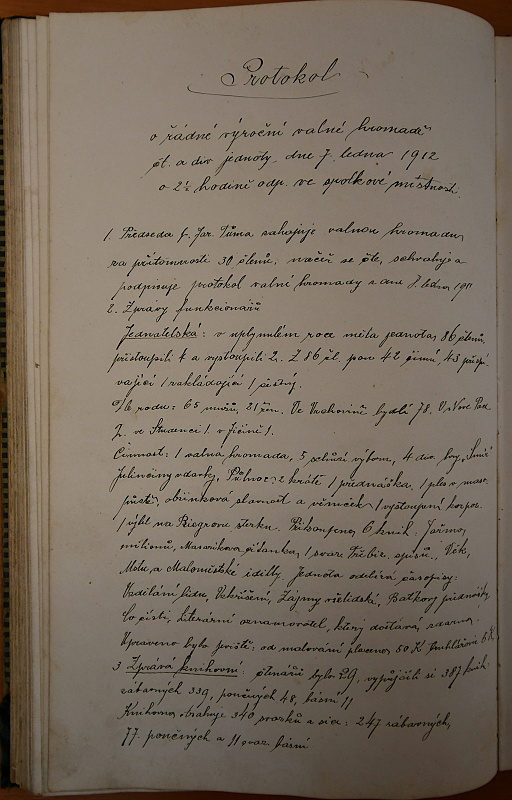 Protokol
o řádné výroční valné hromadě
čt. a div. jednoty dne 7. ledna 1912
o 2½ hodině odp. ve spolkové místnosti.
1. Předseda p. Jar. Tůma zahajuje valnou hromadu
za přítomnosti 30 členů, načež se čte, schvaluje a
podpisuje protokol valné hromady z dne 8. ledna 1911
2. Zprávy funkcionářů
Jednatelská: v uplynulém roce měla jednota 86 členů,
přistoupili 4 a vystoupili 2. Z 86 čl. jsou 42 činní, 43 přispí-
vající 1 zakládající 1 čestný.
Dle rodu: 65 mužů, 21 žen. Ve Vrchovině bydlí 78. V Nové Pace
2. ve Studenci 1. v Jičíně 1.
Činnost: 1 valná hromada, 5 schůzí výboru, 4 div. hry,
vdavky, Půlnoc, 2kráte 1 přednáška, 1 ples v mas-
obžínková slavnost a věneček, 1 vystoupení korpor.
1 výlet na Riegrovu stezku. Přikoupeno 6 knih: Jařmo,
milionů, Masarykova čítanka, 1 svaz. Třebíz. spisů, Věk,
a Maloměstské idilly. Jednota odebírá časopisy:
Vzdělání lidu, Vzkříšení, Zájmy všelidské, přednášky,
Co čísti, literární oznamovatel, který dostává zdarma.
Upraveno bylo jeviště: od malování placeno 50 K 6 K
3. Zpráva knihovní: čtenářů bylo 29, vypůjčili si 387 knih:
zábavných 339, poučných 48, básní 11
Knihovna obsahuje 340 svazků a sice: 247 zábavných,
77. poučných a 11 svaz. básní